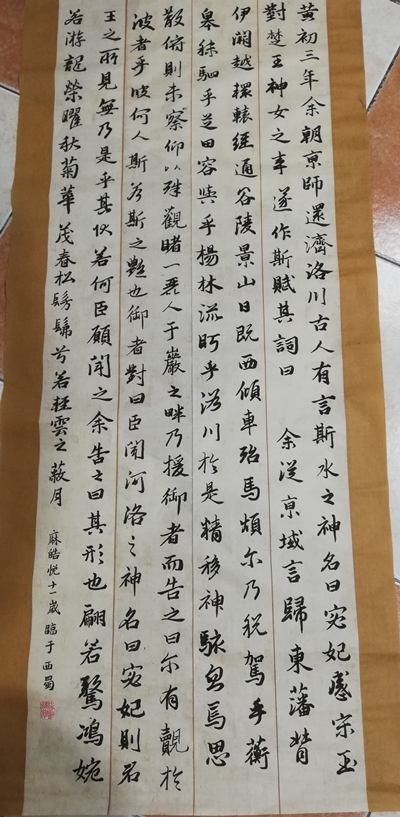 黄初三年余朝京師還濟洛川古人有言斯水之神名曰宓妃感宋玉
對楚王神女之事遂作斯賦其詞曰 余從京域言歸東藩背
伊闕越轘轅經通谷陵景山日既西傾車殆馬煩尔乃税駕乎蘅
皋秣駟乎芝田容與乎楊林流眄乎洛川於是精移神駭忽焉思
散俯則未察仰以殊觀睹一麗人于巖之畔乃援御者而告之曰尔有覿於
彼者乎彼何人斯若斯之艷也御者對曰臣聞河洛之神名曰宓妃則君
王之所見無乃是乎其狀若何臣願聞之余告之曰其形也翩若驚鴻婉
若游龍榮曜秋菊華茂春松髣髴兮若輕雲之蔽月
麻皓悦十一歲臨于西蜀